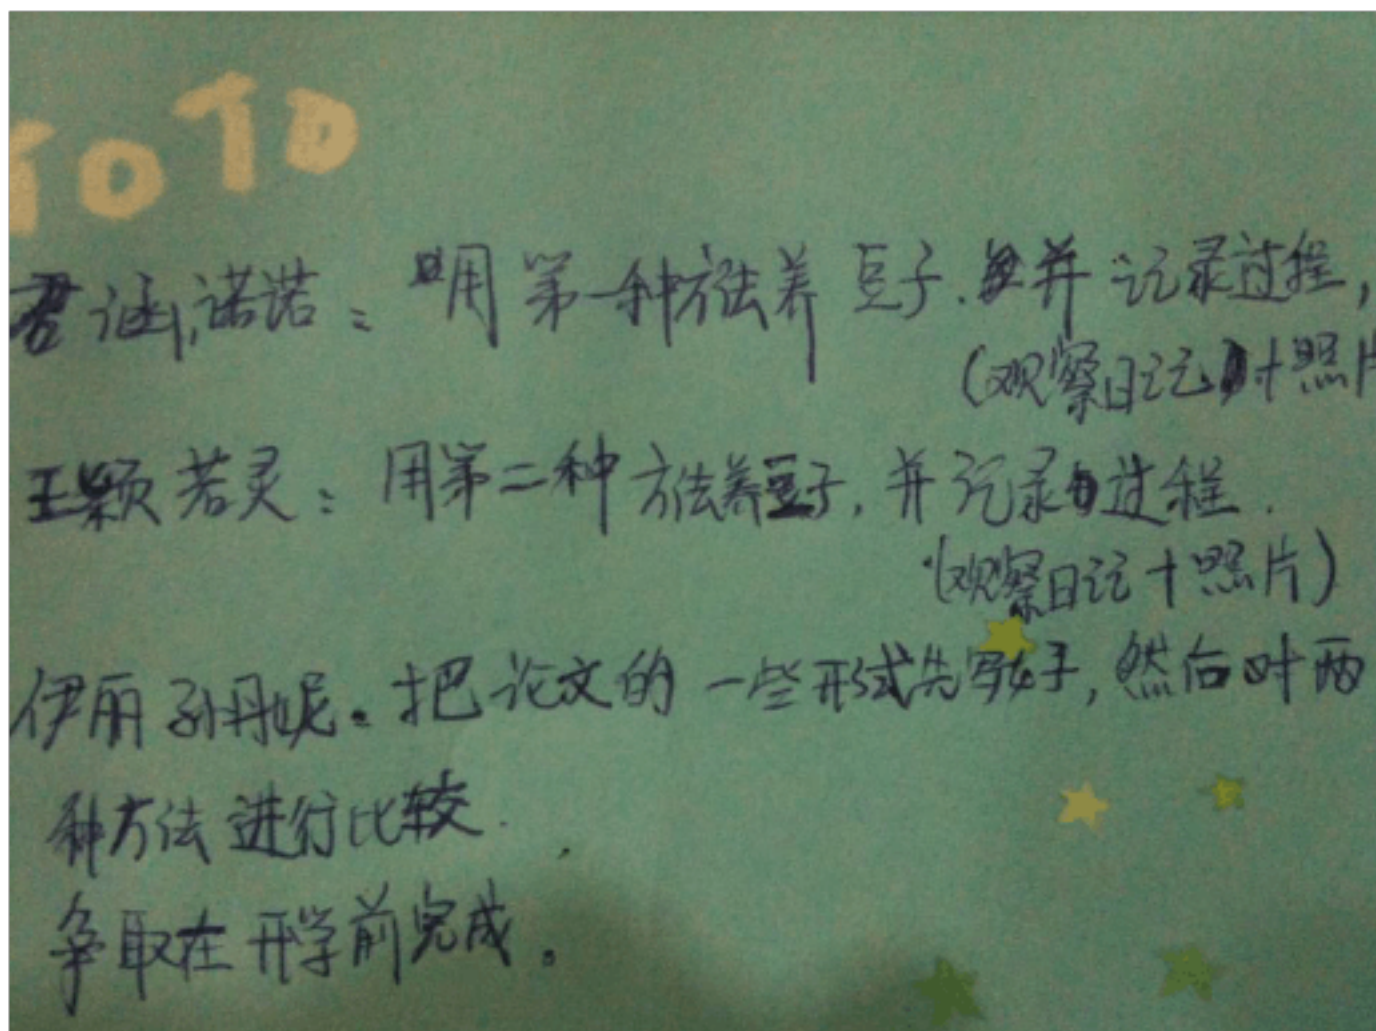 TOTO
君涵,诺诺：用第一种方法养豆子.并记录过程,
(观察日记+照片
王颖若灵：用第二种方法养豆子,并记录过程.
(观察日记+照片)
伊丽孙丹妮。把论文的一些形式先写好,然后对两
种方法进行比较.
争取在开学前完成。